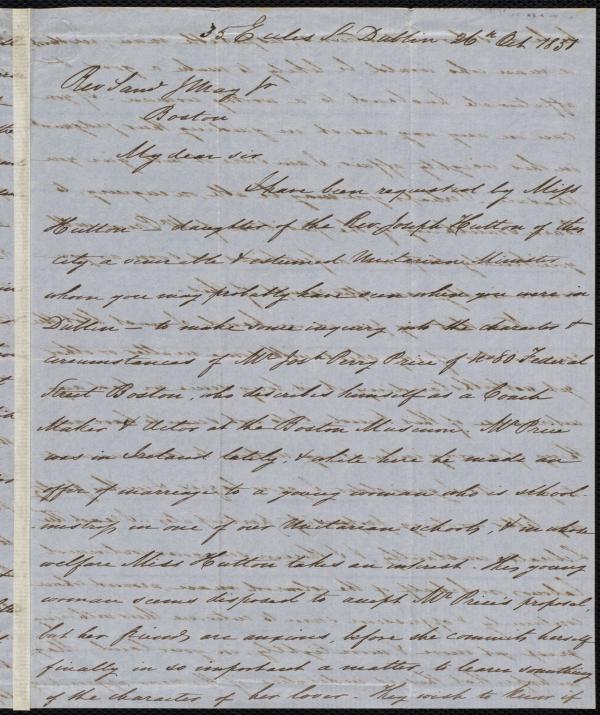 35 Eccles St. Dublin 26th Oct 1851
Rev Saml J May Jr
Boston
My dear sir
I have been requested by Miss
Hutton - daughter of the Rev Joseph Hutton of this
city a venerable & esteemed Unitarian Minister
whom you may probably have seen when you were in
Dublin - to make some inquiry into the character &
circumstances of Mr. Josh Price of No 80 Federal
Street Boston, who describes himself as a Coach
Maker & Actor at the Boston Museum. Mr Price
was in Ireland lately, & while here he made an
offer of marriage to a young woman who is school-
mistress in one of our Unitarian schools, & in whose
welfare Miss Hutton takes an interest. This young
woman seems disposed to accept Mr Price's proposal,
but her friends are anxious, before she commits herself
finally in so important a matter to learn something
of the character of her lover. They wish to know if